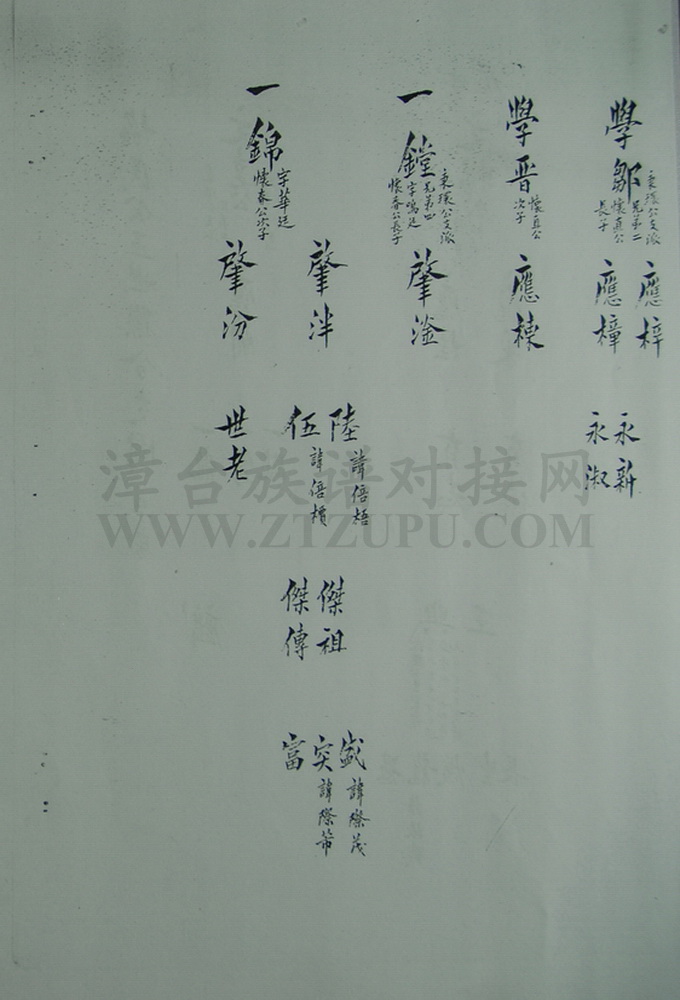 學鄒
東環公支派
兄弟二
懷真公
長子
學晋
懷真公
次子
一鏜
東環公支派
兄弟四
字鳴廷
懷春公長子
一錦
字華廷
懷春公次子
應梓
應樟
應棟
肇淦
肇泮
肇汾
永新
永淑
陸
諱倍梧
伍
諱倍檟
世老
傑祖
傑傳
盛
諱際茂
突
諱際芾
富
漳台族谱对接网
WWW.ZTZUPU.COM